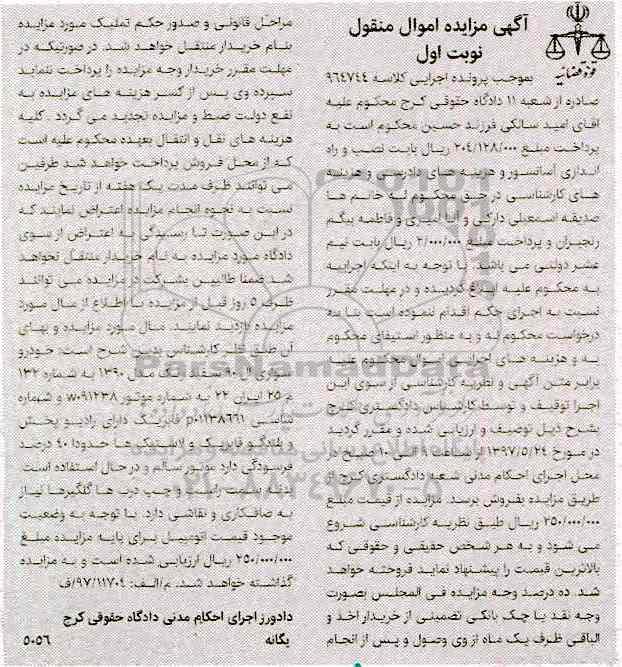 آگهی مزایده اموال منقول
نوبت اول
قوه قضائیه
بموجب پرونده اجرایی کلاسه ۹۶۴۷۴۴
صادره از شعبه ۱۱ دادگاه حقوقی کرج محکوم علیه
آقای امید سالکی فرزند حسین محکوم است به
پرداخت مبلغ ۲۰۴/۱۲۸/۰۰۰ ریال بابت نصب و راه
اندازی آسانسور و هزینه های دادرسی و هزینه
های کارشناسی در حق محکوم له خانم ها
صدیقه اسمعیلی دارکی و فاطمه بیگم
رنجبران و پرداخت مبلغ ۲/۰۰۰/۰۰۰ ریال بابت نیم
عشر دولتی می باشد. با توجه به اینکه اجراییه
به محکوم علیه ابلاغ گردیده و در مهلت مقرر
نسبت به اجرای حکم اقدام ننموده است بنا به
درخواست محکوم له و به منظور استیفای محکوم
به و هزینه های اجرایی اموال محکوم علیه
برابر متن آگهی و نظریه کارشناسی از سوی این
اجرا توقیف و توسط کارشناس دادگستری کرج
بشرح ذیل توصیف و ارزیابی شده و مقرر گردید
در مورخ ۱۳۹۷/۵/۲۴ از ساعت ۹ الی ۱۰ صبح در
محل اجرای احکام مدنی شعبه دادگستری کرج از
طریق مزایده بفروش برسد. مزایده از قیمت مبلغ
۲۵۰/۰۰۰/۰۰۰ ریال طبق نظریه کارشناسی شروع
می شود و به هر شخص حقیقی و حقوقی که
بالاترین قیمت را پیشنهاد نماید فروخته خواهد
شد. ده درصد وجه مزایده فی المجلس بصورت
وجه نقد یا چک بانکی تضمینی از خریدار اخذ و
الباقی ظرف یک ماه از وی وصول و پس از انجام
مراحل قانونی و صدور حکم تملیک مورد مزایده
بنام خریدار منتقل خواهد شد. در صورتیکه در
مهلت مقرر خریدار وجه مزایده را پرداخت ننماید
سپرده وی پس از کسر هزینه های مزایده به
نفع دولت ضبط و مزایده تجدید می گردد. کلیه
هزینه های نقل و انتقال بعهده محکوم علیه است
که از محل فروش پرداخت خواهد شد طرفین
می توانند ظرف مدت یک هفته از تاریخ مزایده
نسبت به نحوه انجام مزایده اعتراض نمایند که
در این صورت تا رسیدگی به اعتراض از سوی
دادگاه مورد مزایده به نام خریدار منتقل نخواهد
شد ضمنا طالبین بشرکت در مزایده می توانند
ظرف ۵ روز قبل از مزایده با اطلاع از مال مورد
مزایده بازدید نمایند. مال مورد مزایده و بهای
آن طبق نظر کارشناس بدین شرح است: خودرو
سواری ال ۹۰ مدل ۱۳۹۰ به شماره ۱۳۲
م ۲۵ ایران ۲۲ به شماره موتور w۰۹۱۲۳۸ و شماره
شاسی p۰۱۱۳۸۶۶۱ فابریک دارای رادیو پخش
و بلندگو فابریک و لاستیک ها حدودا ۴۰ درصد
فرسودگی دارد موتور سالم و در حال استفاده است.
بدنه سمت راست و چپ درب ها گلگیرها نیاز
به صافکاری و نقاشی دارد. با توجه به وضعیت
موجود قیمت اتومبیل برای پایه مزایده مبلغ
۲۵۰/۰۰۰/۰۰۰ ریال ارزیابی شده است و به مزایده
گذاشته خواهد شد. م/الف: ۹۷/۱۱۷۰۴/ف
دادورز اجرای احکام مدنی دادگاه حقوقی کرج
یگانه
۵۰۵۶
ParsNamadData
۰۲۱-۸۸۳۴۹۶۷۰-۵